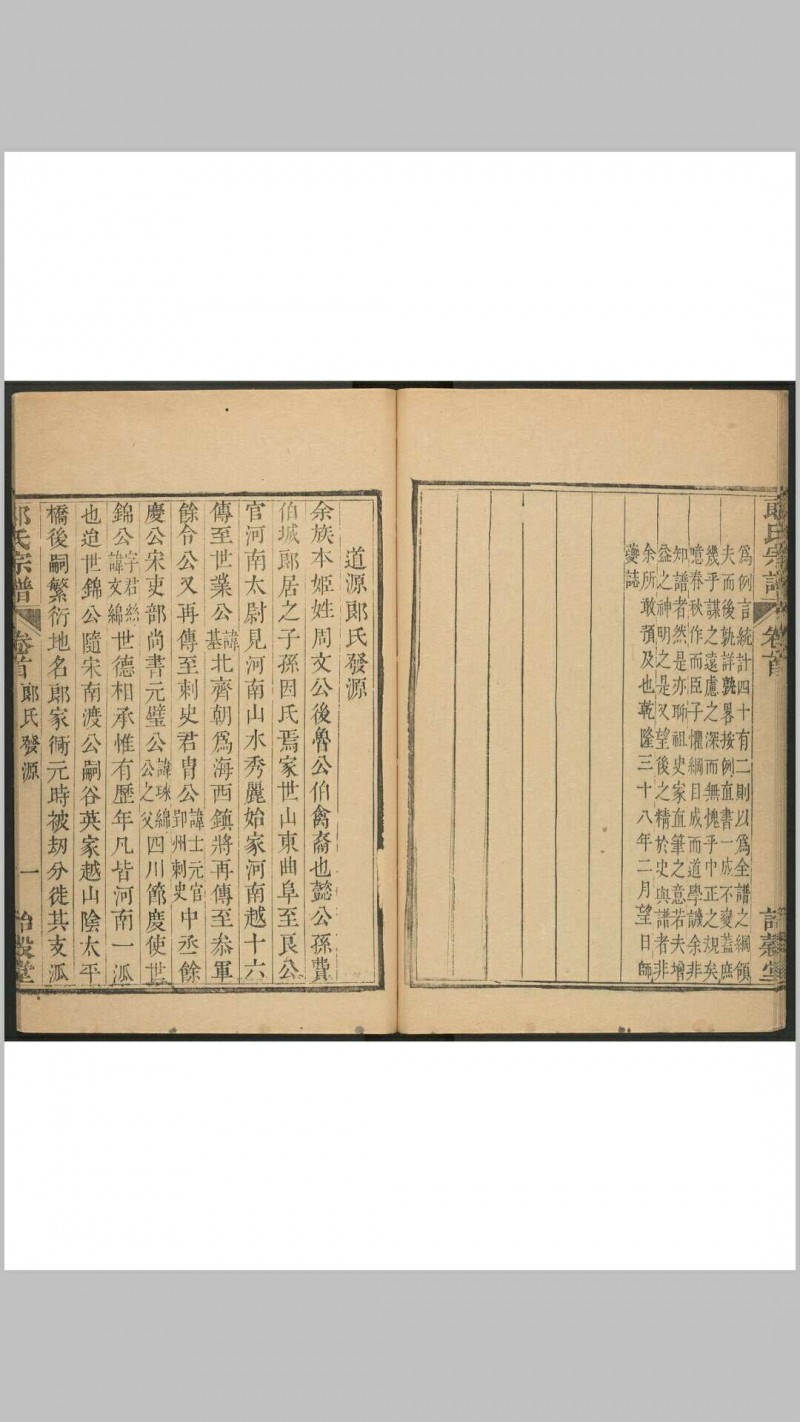 郎氏宗譜
卷首
為例言統計四十有二則以為全譜之綱領
夫而後軌詳孰畧按例直書一成不變蓋庶
幾乎謀之遠慮之深而無愧乎中正之規矣
噫春秋作而臣子懼綱目成而道學譏余非
知譜者然是亦聊祖史家直筆之意若夫增
益之神明之是又望後之精於史與譜者非
余所敢預及也乾隆三十八年二月望日師
夔誌
道源郎氏發源
余族本姬姓周文公後魯公伯禽裔也懿公孫費
伯城郎居之子孫因氏焉家世山東曲阜至艮公
官河南太尉見河南山水秀麗始家河南越十六
傳至世業公諱基北齊朝為海西鎮將再傳至叅軍
餘令公又再傳至刺史君胄公諱士元官郢州刺史中丞餘
慶公宋吏部尚書元璧公諱珠綿公之父四川節慶使世
錦公字君絲諱文綿世德相承惟有歷年凡皆河南一派
也迨世錦公隨宋南渡公嗣谷英家越山陰太平
橋後嗣繁衍地名郎家衕元時被刼分徙其支派
郎氏宗譜
卷首
郎氏發源
一